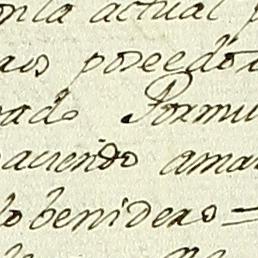 onla actual p
ais poseedor
rado Formu
aciendo amar
lo benidero =